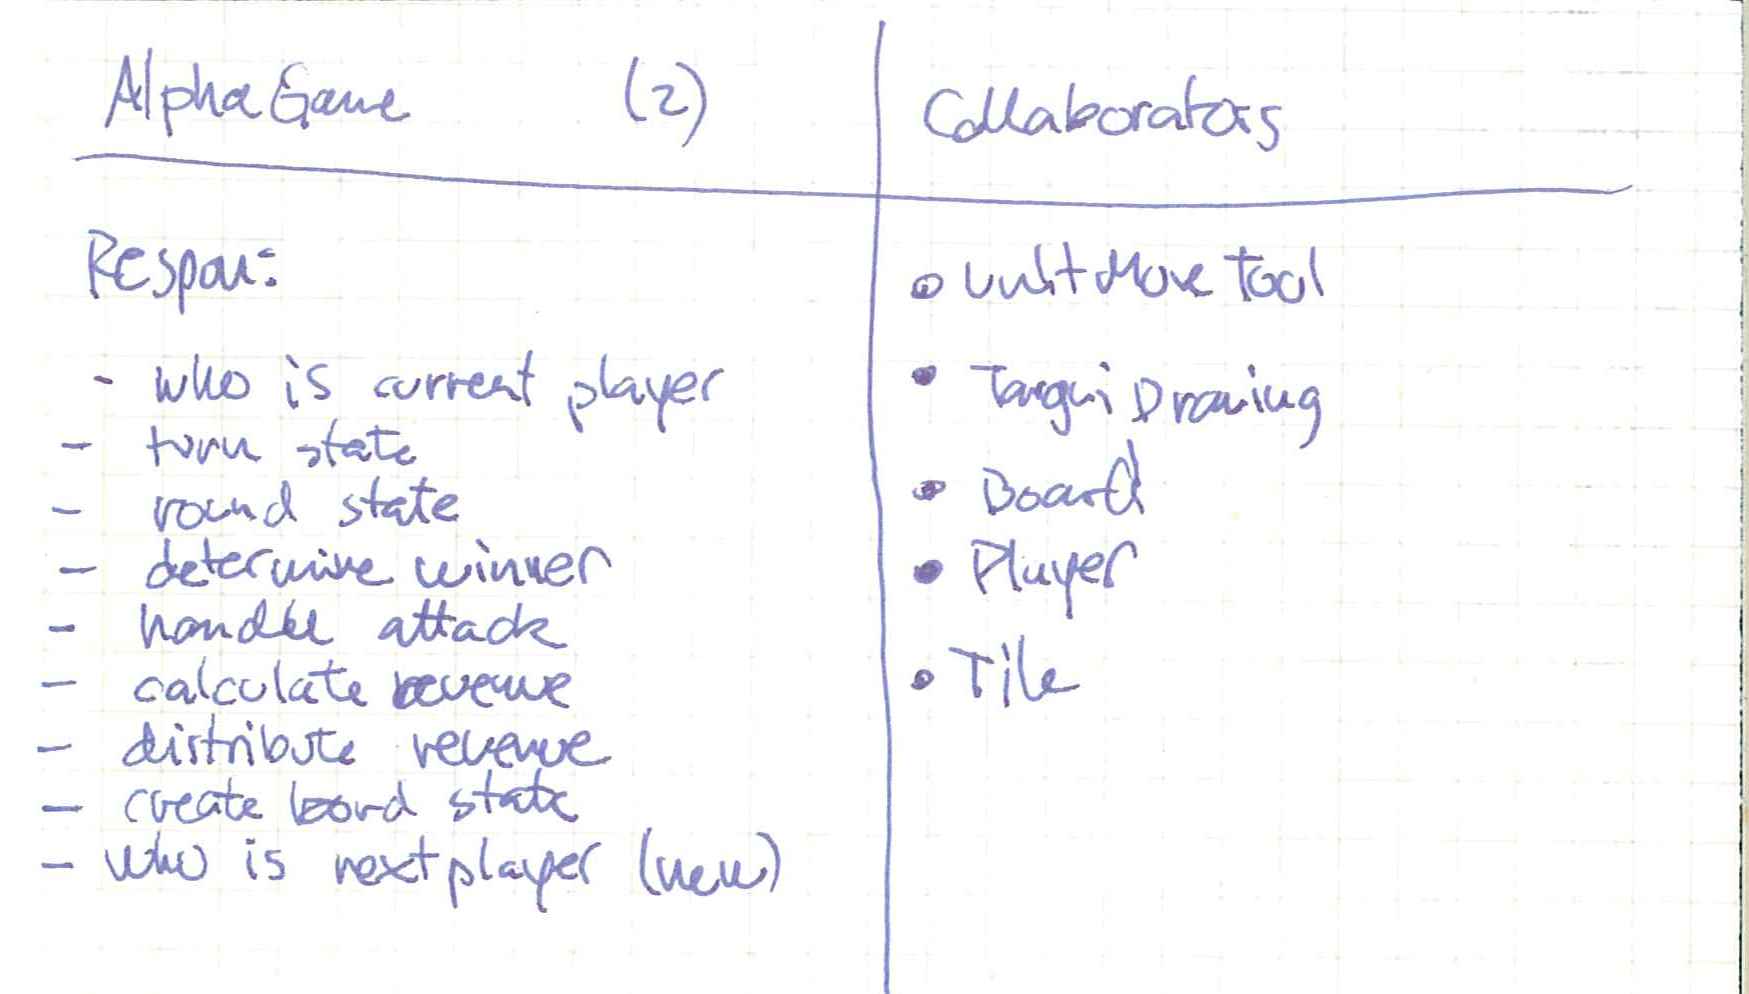 AlphaGame (2)
Respon:
- who is current player
- turn state
- round state
- determine winner
- handle attack
- calculate revenue
- distribute revenue
- create bord state
- who is next player (new)
Collaborators
• UnitMoveTool
• Tangui Drawing
• Board
• Player
• Tile